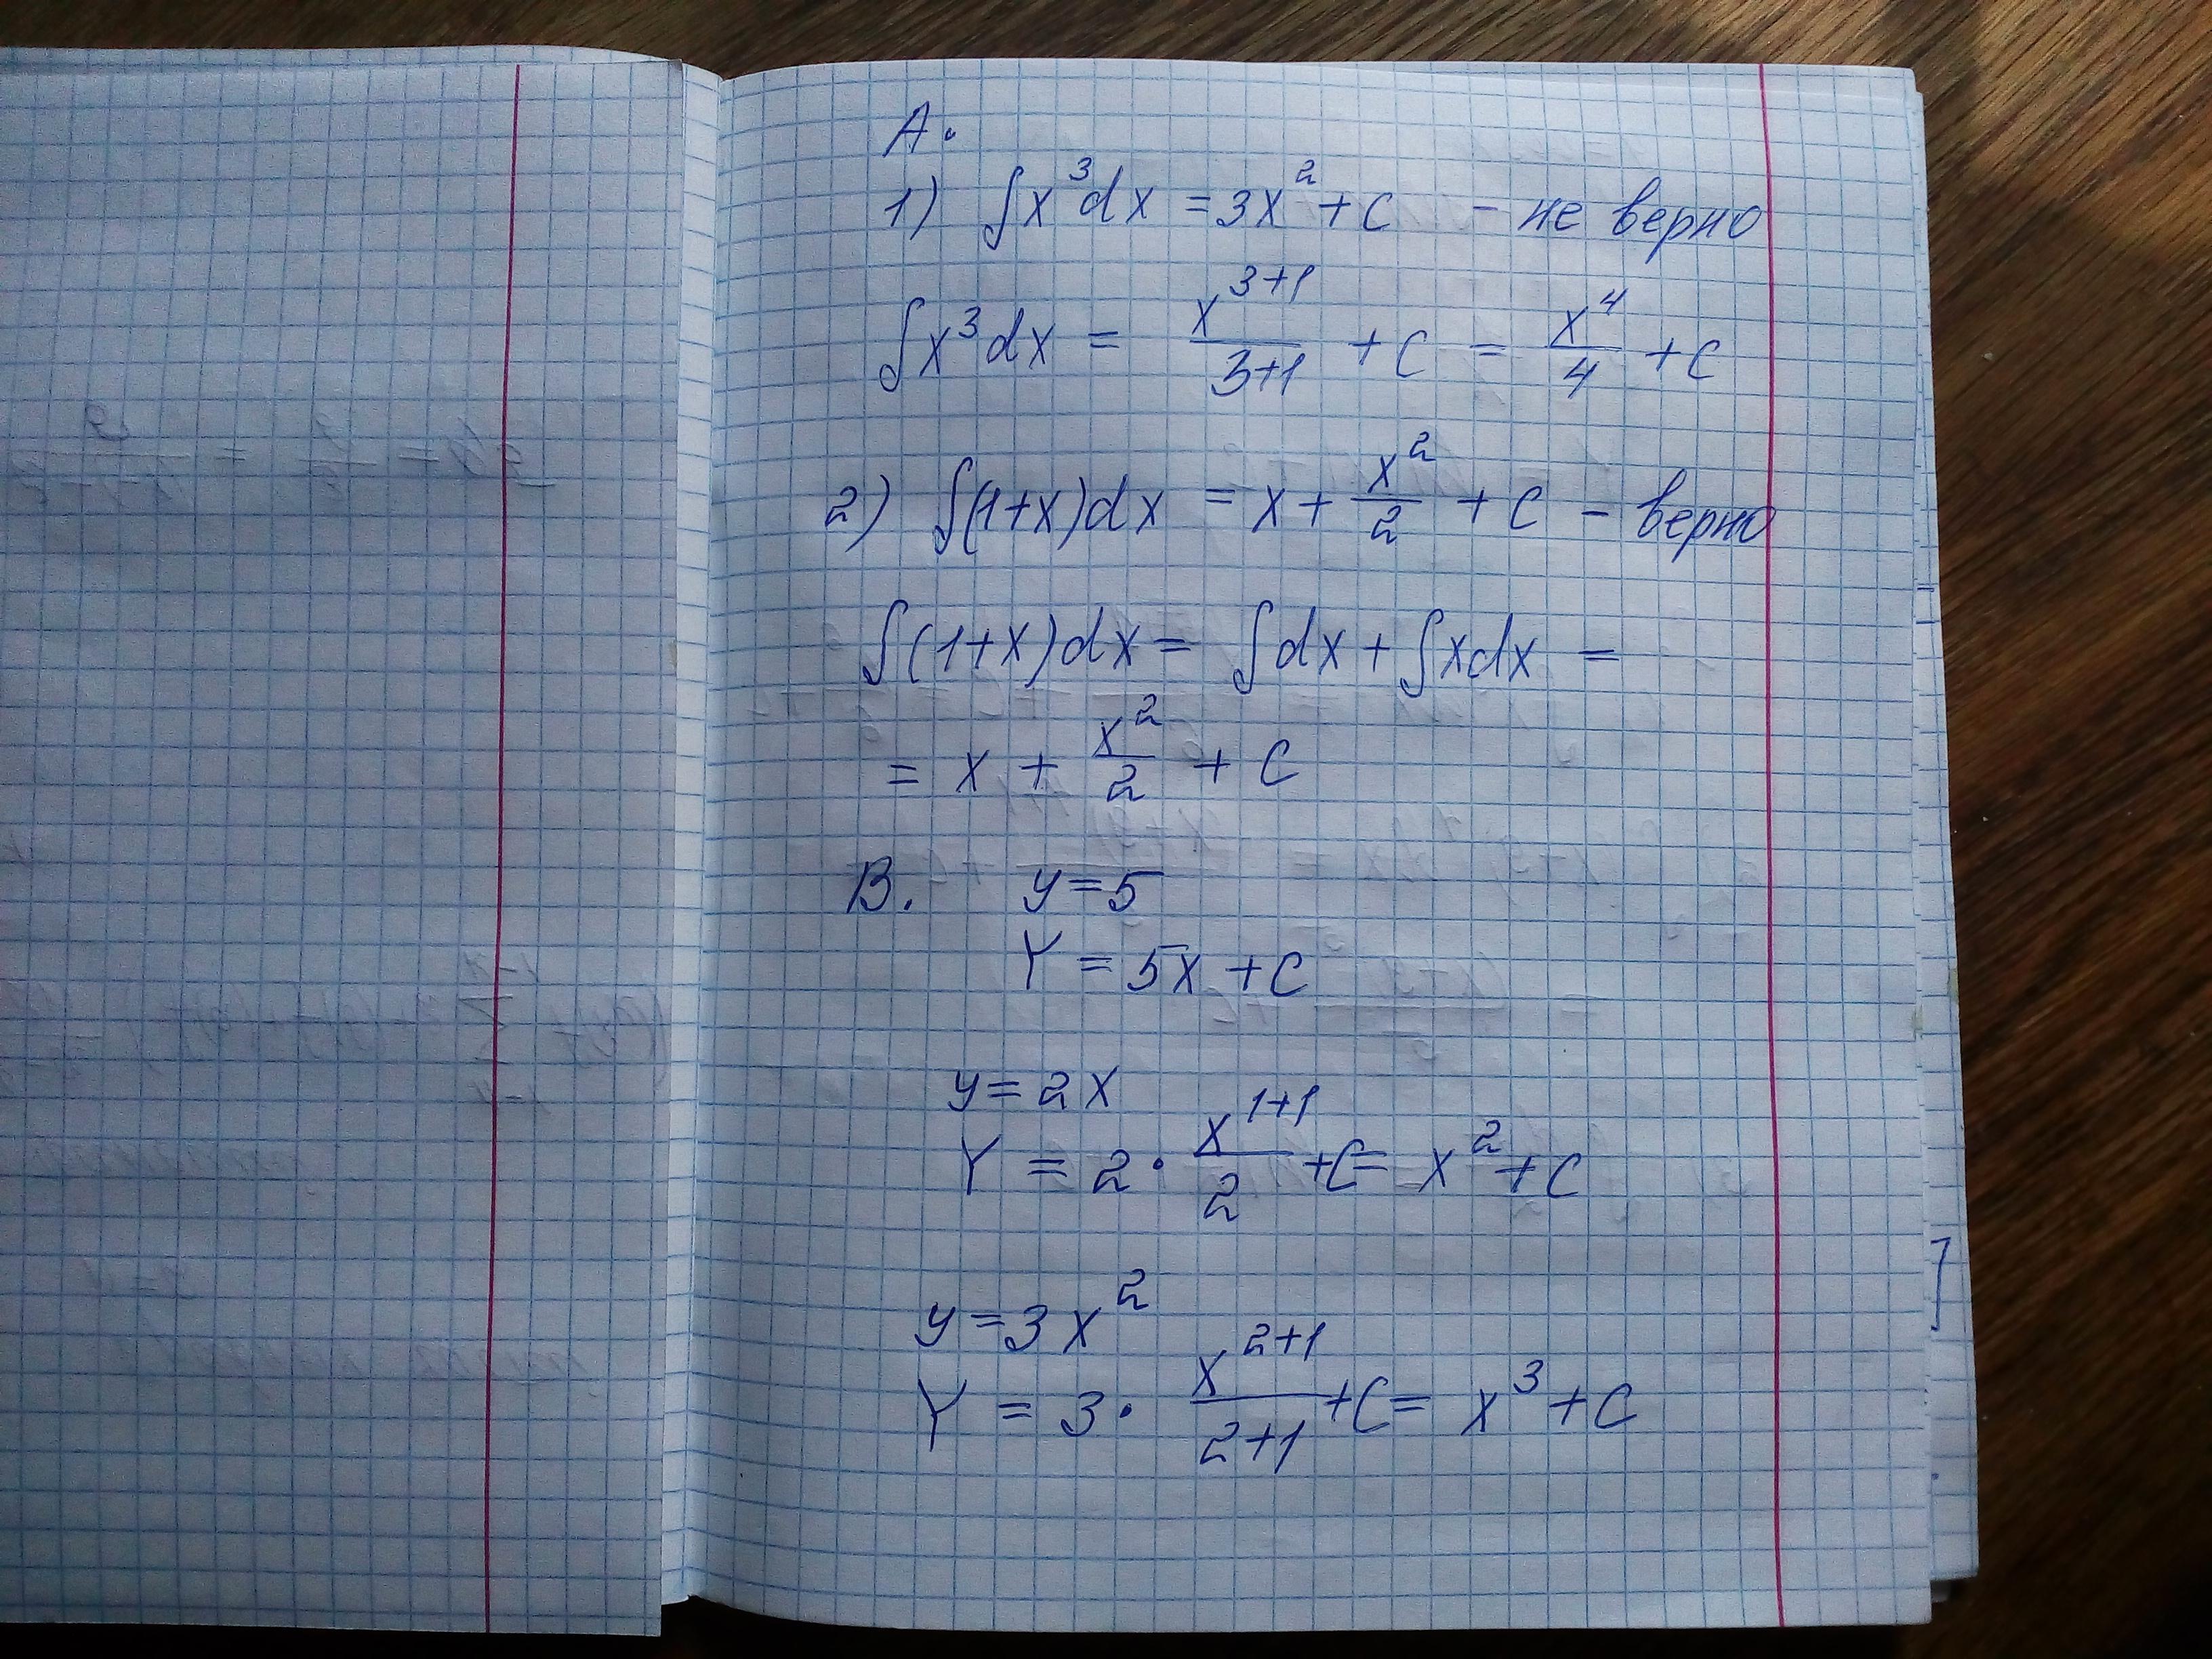 А.
1) ∫x³dx = 3x² + C - не верно
∫x³dx = x^(3+1)/(3+1) + C = x⁴/4 + C
2) ∫(1+x)dx = x + x²/2 + C - верно
∫(1+x)dx = ∫dx + ∫xdx =
= x + x²/2 + C
В. y = 5
Y = 5x + C
y = 2x
Y = 2 · x^(1+1)/2 + C = x² + C
y = 3x²
Y = 3 · x^(2+1)/(2+1) + C = x³ + C